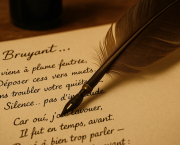 Bruyant...
viens à plume feutrée,
Déposer ces vers muets
ans troubler votre quiét
Silence.. pas d'in
Car oui, j'
vouer,
Il fut en temps, avant.
à bien trop parler —